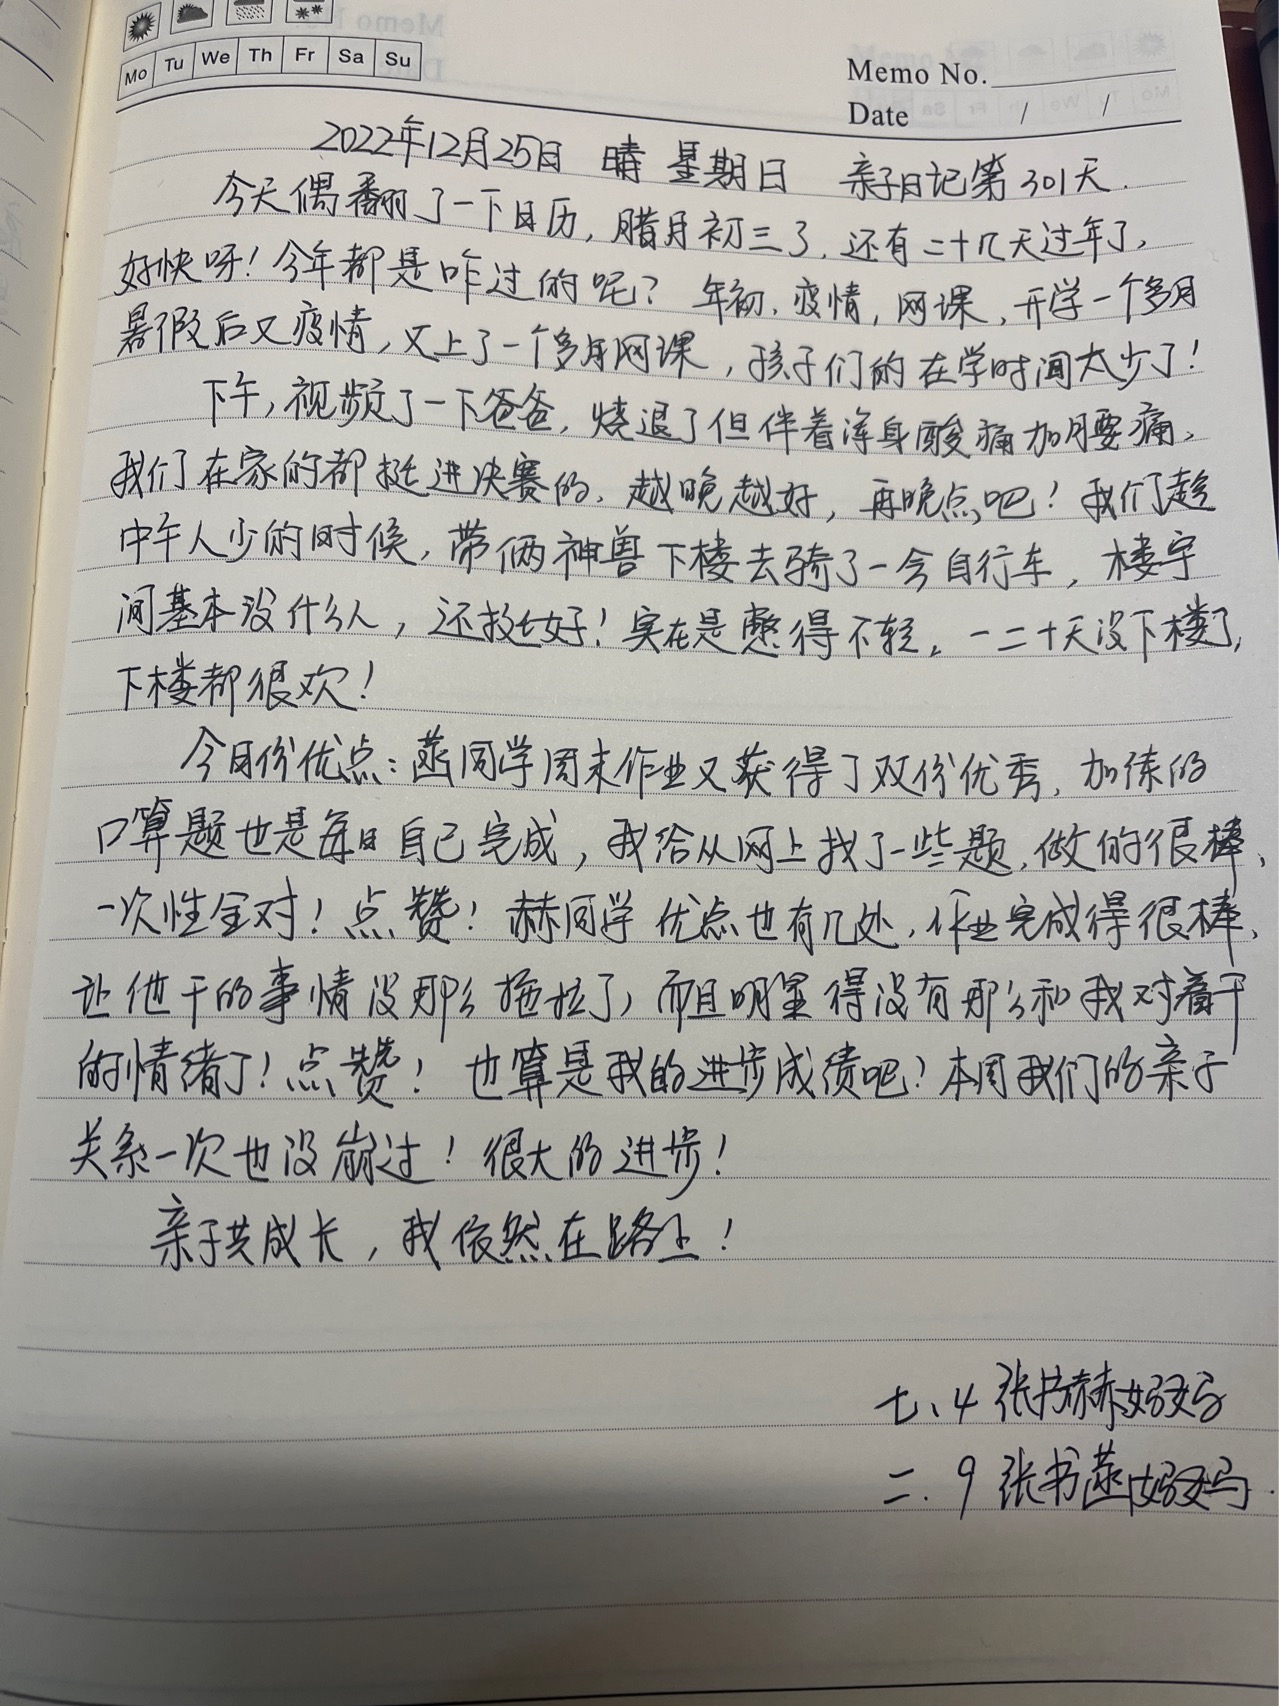 Mo Tu We Th Fr Sa Su
Memo No.
Date / /
2022年12月25日 晴 星期日 亲子日记第301天.
今天偶翻了一下日历,腊月初三了,还有二十几天过年了,
好快呀!今年都是咋过的呢?年初,疫情,网课,开学一个多月
暑假后又疫情,又上了一个多月网课,孩子们的在学时间太少了!
下午,视频了一下爸爸,烧退了但伴着浑身酸痛加腰痛、
我们在家的都挺进决赛的、越晚越好,再晚点吧!我们趁
中午人少的时候,带俩神兽下楼去骑了一会自行车,楼宇
间基本没什么人,还挺好!实在是憋得不轻。一二十天没下楼了,
下楼都很欢!
今日份优点:菡同学周末作业又获得了双份优秀,加练的
口算题也是每日自己完成,我给从网上找了一些题,做的很棒、
一次性全对!点赞!赫同学优点也有几处,作业完成得很棒、
让他干的事情没那么拖拉了,而且明显得没有那么和我对着干
的情绪了!点赞!也算是我的进步成绩吧?本周我们的亲子
关系一次也没崩过!很大的进步!
亲子共成长,我依然在路上!
七、4 张书赫妈妈
二.9 张书菡妈妈.